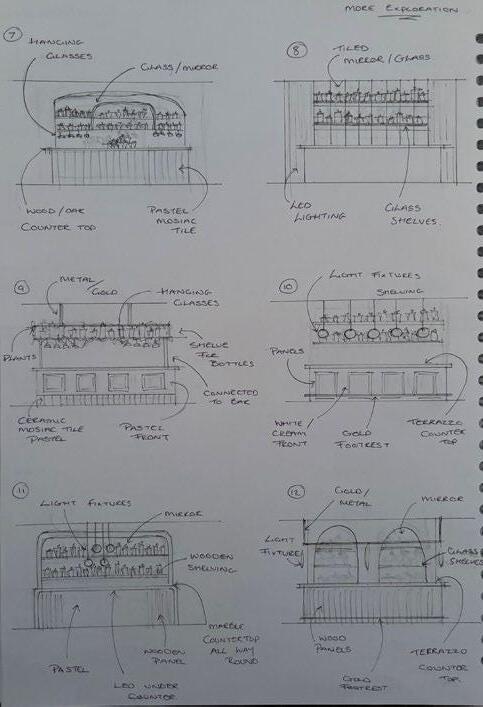 MORE EXPLORATION
7
HANGING
GLASSES
GLASS/MIRROR
WOOD/OAK
COUNTER TOP
PASTEL
MOSIAC
TILE
8
TILED
MIRROR/GLASS
LED
LIGHTING
GLASS
SHELVES.
9
METAL
/GOLD
HANGING
GLASSES
PLANTS
SHELVE
FOR
BOTTLES
CONNECTED
TO BAR
CERAMIC
MOSIAC TILE
PASTEL
PASTEL
FRONT
10
LIGHT FIXTURES
SHELVING
PANELS
WHITE/
CREAM
FRONT
GOLD
FOOTREST
TERRAZZO
COUNTER
TOP
11
LIGHT FIXTURES
MIRROR
WOODEN
SHELVING
PASTEL
LED UNDER
COUNTER
WOODEN
PANEL
MARBLE
COUNTERTOP
ALL WAY
ROUND
12
GOLD/
METAL
MIRROR
LIGHT
FIXTURE
GLASS
SHELVES
WOOD
PANELS
GOLD
FOOTREST
TERRAZZO
COUNTER
TOP.